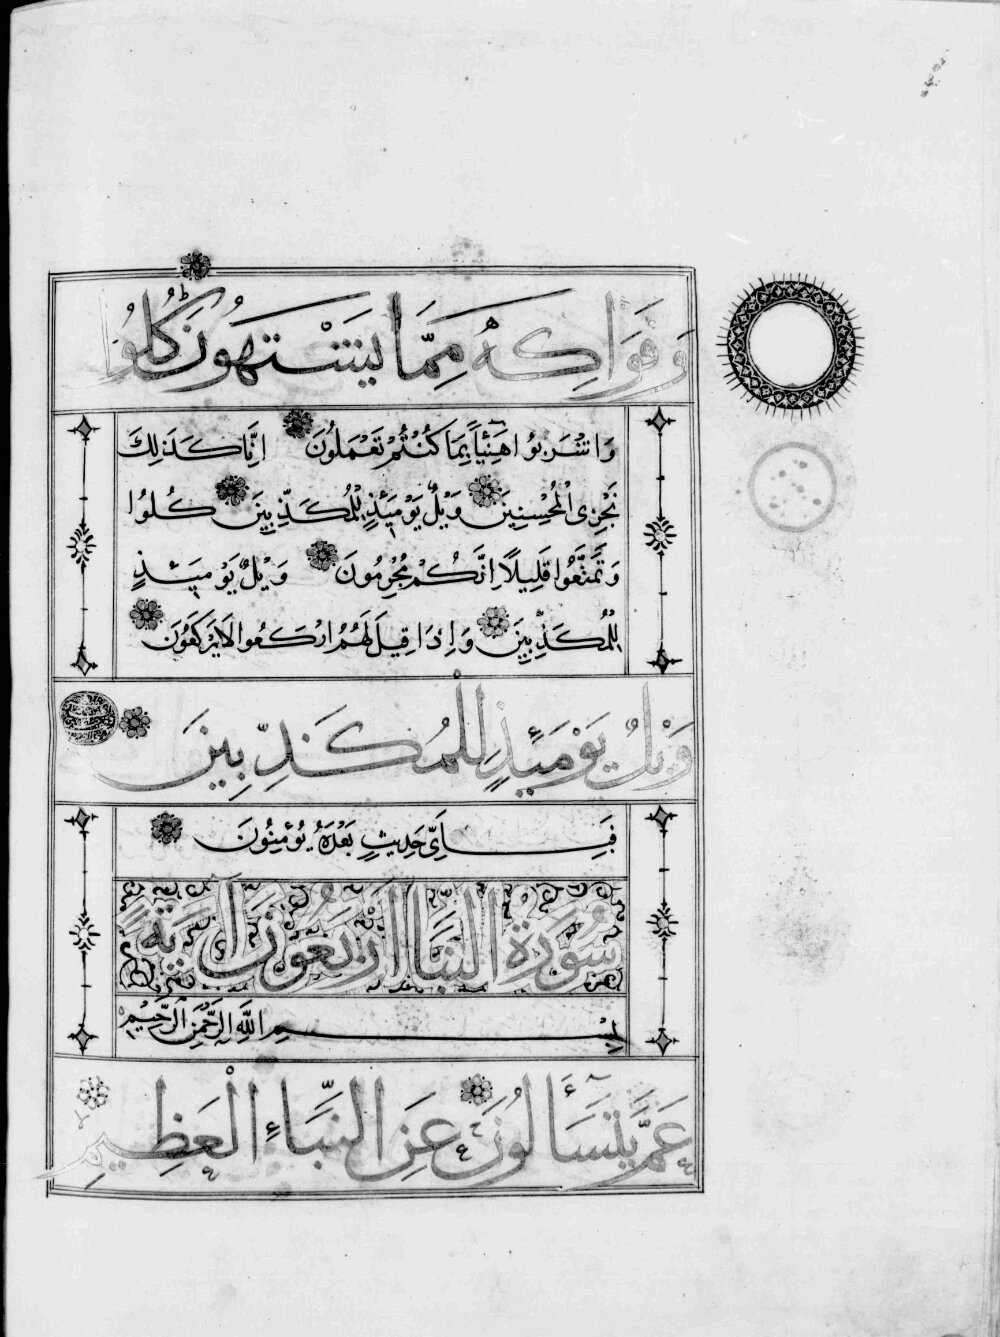 وَفَوَاكِهَ مِمَّا يَشْتَهُونَ كُلُوا
وَاشْرَبُوا هَنِيئًا بِمَا كُنْتُمْ تَعْمَلُونَ اِنَّا كَذَلِكَ
نَجْزِى الْمُحْسِنِينَ وَيْلٌ يَوْمَئِذٍ لِلْمُكَذِّبِينَ كُلُوا
وَتَمَتَّعُوا قَلِيلًا اِنَّكُمْ مُجْرِمُونَ وَيْلٌ يَوْمَئِذٍ
لِلْمُكَذِّبِينَ وَاِذَا قِيلَ لَهُمُ ارْكَعُوا لَا يَرْكَعُونَ
وَيْلٌ يَوْمَئِذٍ لِلْمُكَذِّبِينَ
فَبِاَىِّ حَدِيثٍ بَعْدَهُ يُؤْمِنُونَ
سُورَةُ النَّبَا اَرْبَعُونَ آيَةً
بِسْمِ اللَّهِ الرَّحْمَنِ الرَّحِيمِ
عَمَّ يَتَسَآءَلُونَ عَنِ النَّبَاءِ الْعَظِيمِ